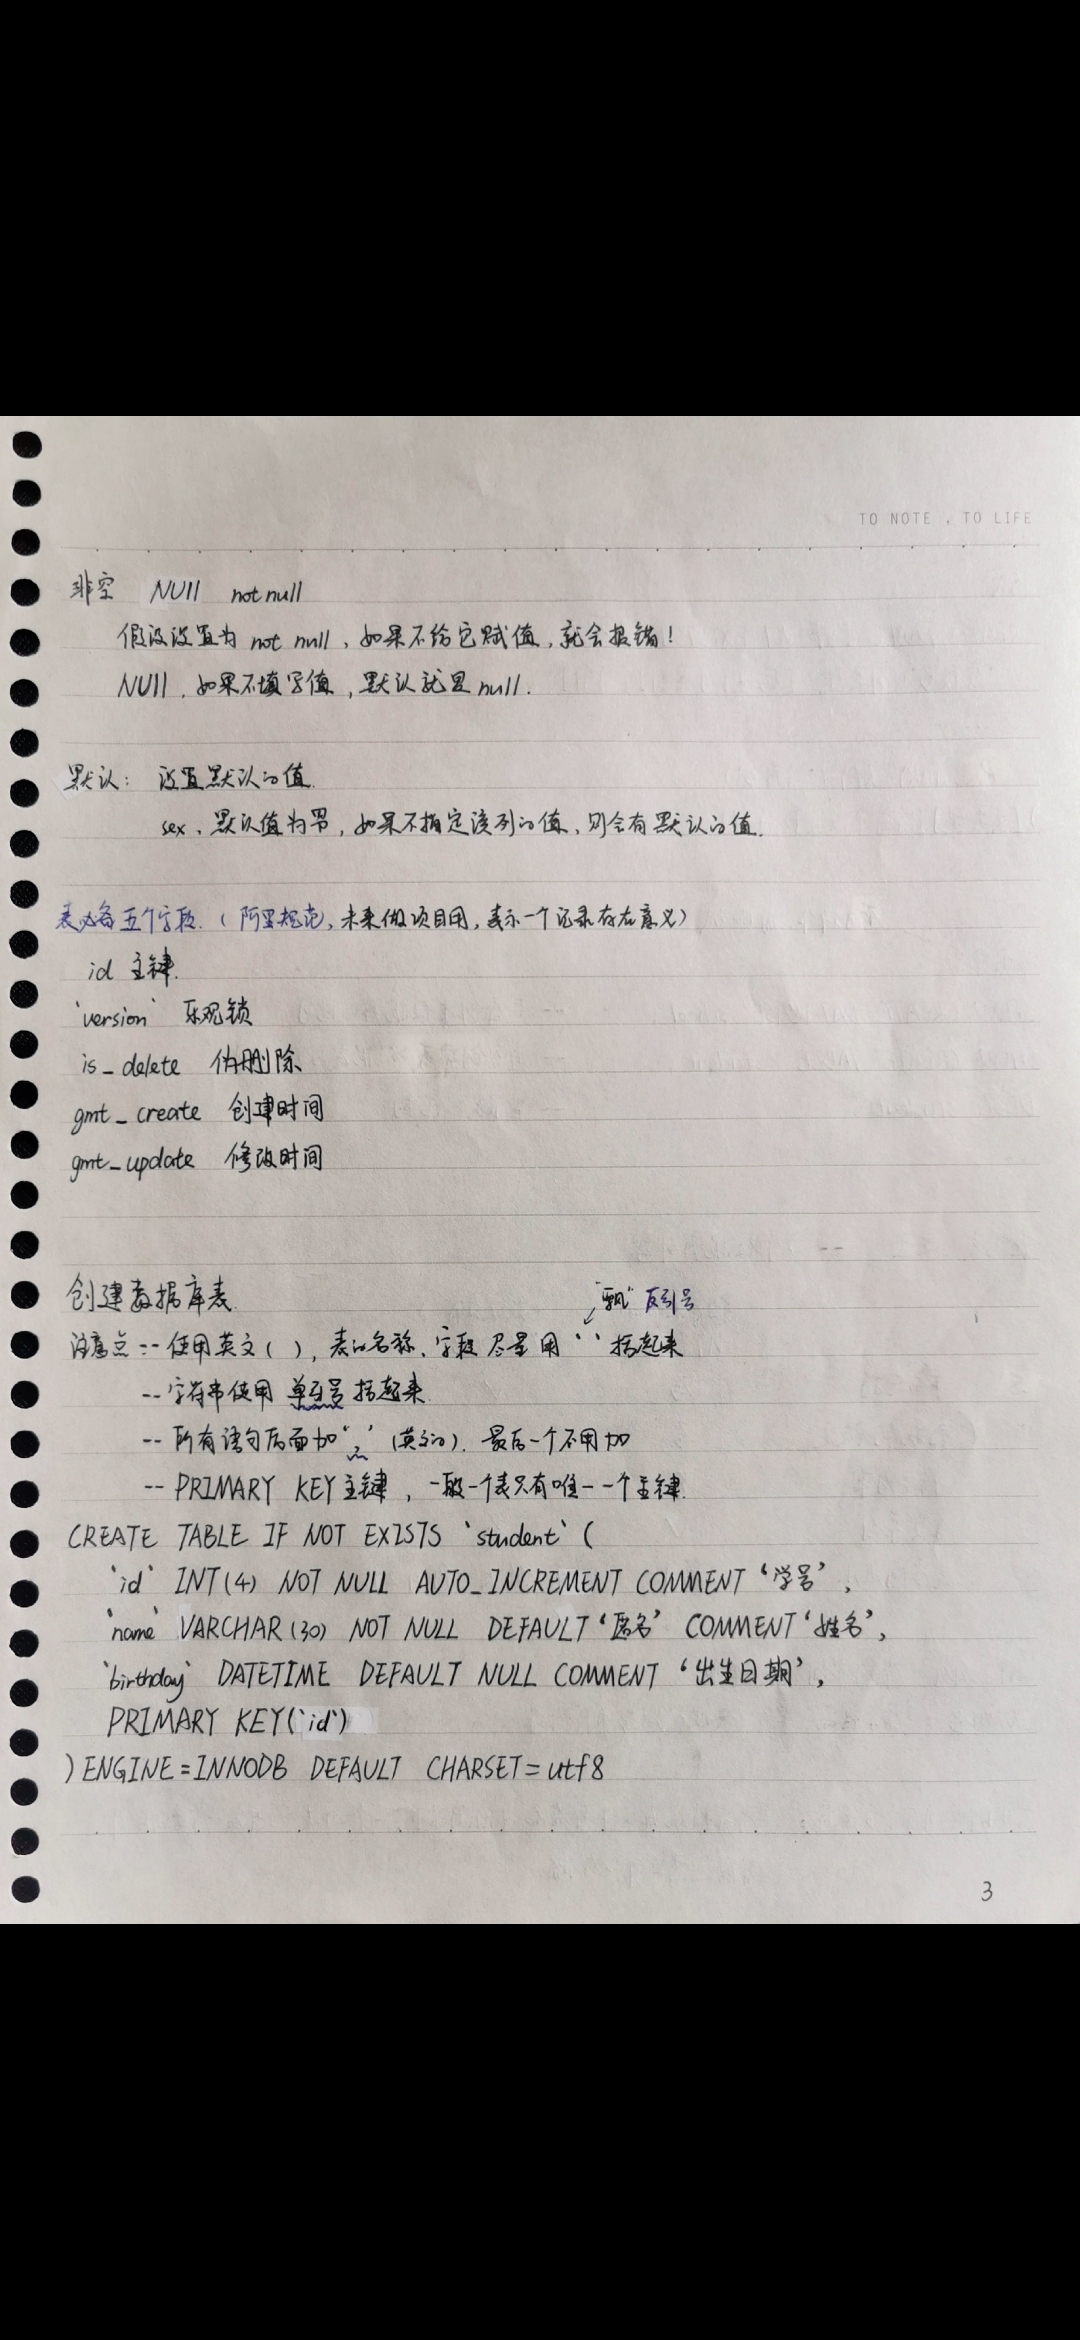 TO NOTE , TO LIFE
非空 NUll not null
假设设置为 not null、如果不给它赋值,就会报错!
NUll、如果不填写值,默认就是 null.
默认: 设置默认的值.
sex、默认值为男,如果不指定该列的值、则会有默认的值.
表必备五个字段.(阿里规范,未来做项目用,表示一个记录存在意义)
id 主键.
`version` 乐观锁
is_delete 伪删除
gmt_create 创建时间
gmt_update 修改时间
创建数据库表.
"飘" 反引号
注意点:-- 使用英文( ),表的名称、字段 尽量用 ` ` 括起来
-- 字符串使用 单引号 括起来.
-- 所有语句后面加‘,’(英文的). 最后一个不用加
-- PRIMARY KEY 主键,一般一个表只有唯一一个主键.
CREATE TABLE IF NOT EXISTS `student` (
`id` INT(4) NOT NULL AUTO_INCREMENT COMMENT ‘学号’,
`name` VARCHAR(30) NOT NULL DEFAULT ‘匿名’ COMMENT ‘姓名’,
`birthday` DATETIME DEFAULT NULL COMMENT ‘出生日期’,
PRIMARY KEY(`id`)
) ENGINE=INNODB DEFAULT CHARSET=utf8
3